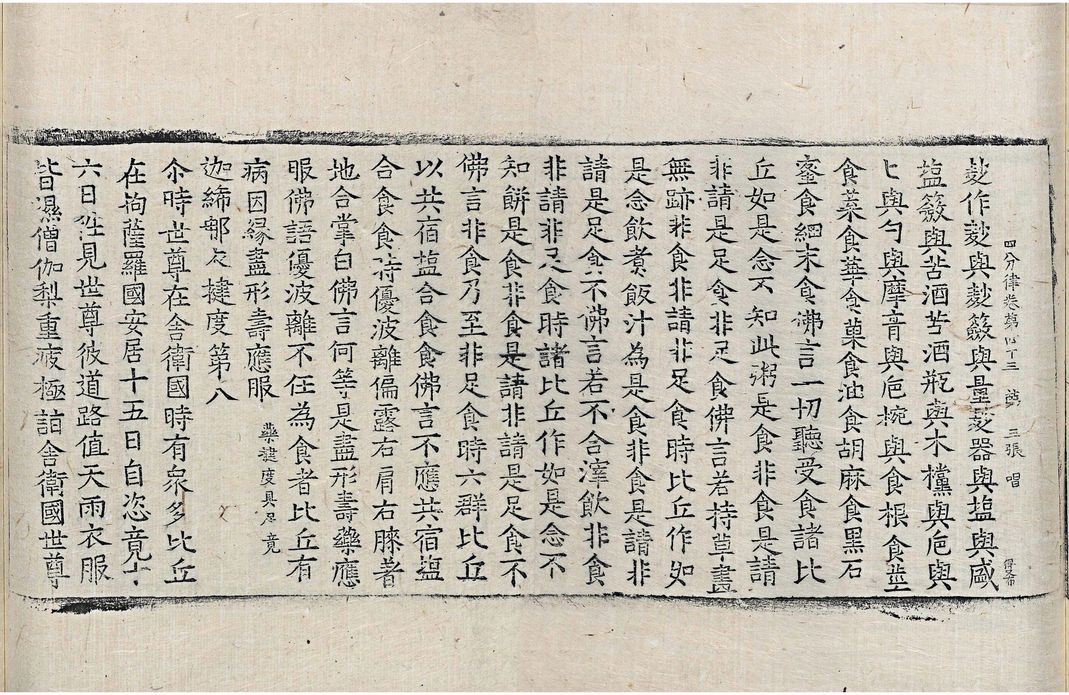 麨作麨與麨籢與量麨器與塩與盛
塩籢與苦酒苦酒瓶與木欓與卮與
匕與勺與摩膏與卮椀與食根食莖
食菜食華食菓食油食胡麻食黑石
蜜食細末食佛言一切聽受食諸比
丘如是念不知此粥是食非食是請
非請是足食非足食佛言若持草畫
無跡非食非請非足食時比丘作如
是念飲煑飯汁為是食非食是請非
請是足食不佛言若不合滓飲非食
非請非足食時諸比丘作如是念不
知餅是食非食是請非請是足食不
佛言非食乃至非足食時六群比丘
以共宿塩合食食佛言不應共宿塩
合食食時優波離偏露右肩右膝著
地合掌白佛言何等是盡形壽藥應
服佛語優波離不任為食者比丘有
病因緣盡形壽應服
藥揵度具足竟
迦絺那衣揵度第八
尒時世尊在舍衛國時有衆多比丘
在拘薩羅國安居十五日自恣竟十
六日往見世尊彼道路值天雨衣服
皆濕僧伽梨重疲極詣舍衛國世尊
四分律卷第四十三 第三張 唱